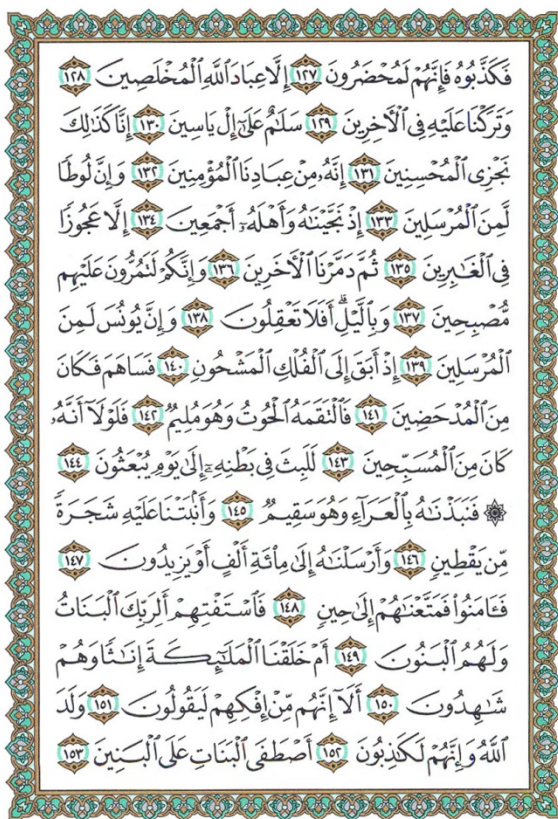 فَكَذَّبُوهُ فَإِنَّهُمْ لَمُحْضَرُونَ ١٢٧ إِلَّا عِبَادَ ٱللَّهِ ٱلْمُخْلَصِينَ ١٢٨
وَتَرَكْنَا عَلَيْهِ فِي ٱلْأَخِرِينَ ١٢٩ سَلَٰمٌ عَلَىٰٓ إِلْ يَاسِينَ ١٣٠ إِنَّا كَذَٰلِكَ
نَجْزِي ٱلْمُحْسِنِينَ ١٣١ إِنَّهُۥ مِنْ عِبَادِنَا ٱلْمُؤْمِنِينَ ١٣٢ وَإِنَّ لُوطًا
لَّمِنَ ٱلْمُرْسَلِينَ ١٣٣ إِذْ نَجَّيْنَٰهُ وَأَهْلَهُۥٓ أَجْمَعِينَ ١٣٤ إِلَّا عَجُوزًا
فِي ٱلْغَٰبِرِينَ ١٣٥ ثُمَّ دَمَّرْنَا ٱلْأَخَرِينَ ١٣٦ وَإِنَّكُمْ لَتَمُرُّونَ عَلَيْهِم
مُّصْبِحِينَ ١٣٧ وَبِٱلَّيْلِۗ أَفَلَا تَعْقِلُونَ ١٣٨ وَإِنَّ يُونُسَ لَمِنَ
ٱلْمُرْسَلِينَ ١٣٩ إِذْ أَبَقَ إِلَى ٱلْفُلْكِ ٱلْمَشْحُونِ ١٤٠ فَسَاهَمَ فَكَانَ
مِنَ ٱلْمُدْحَضِينَ ١٤١ فَٱلْتَقَمَهُ ٱلْحُوتُ وَهُوَ مُلِيمٌ ١٤٢ فَلَوْلَآ أَنَّهُۥ
كَانَ مِنَ ٱلْمُسَبِّحِينَ ١٤٣ لَلَبِثَ فِي بَطْنِهِۦٓ إِلَىٰ يَوْمِ يُبْعَثُونَ ١٤٤
۞ فَنَبَذْنَٰهُ بِٱلْعَرَآءِ وَهُوَ سَقِيمٌ ١٤٥ وَأَنۢبَتْنَا عَلَيْهِ شَجَرَةً
مِّن يَقْطِينٍ ١٤٦ وَأَرْسَلْنَٰهُ إِلَىٰ مِا۟ئَةِ أَلْفٍ أَوْ يَزِيدُونَ ١٤٧
فَـَٔامَنُوا۟ فَمَتَّعْنَٰهُمْ إِلَىٰ حِينٍ ١٤٨ فَٱسْتَفْتِهِمْ أَلِرَبِّكَ ٱلْبَنَاتُ
وَلَهُمُ ٱلْبَنُونَ ١٤٩ أَمْ خَلَقْنَا ٱلْمَلَٰٓئِكَةَ إِنَٰثًا وَهُمْ
شَٰهِدُونَ ١٥٠ أَلَآ إِنَّهُم مِّنْ إِفْكِهِمْ لَيَقُولُونَ ١٥١ وَلَدَ
ٱللَّهُ وَإِنَّهُمْ لَكَٰذِبُونَ ١٥٢ أَصْطَفَى ٱلْبَنَاتِ عَلَى ٱلْبَنِينَ ١٥٣